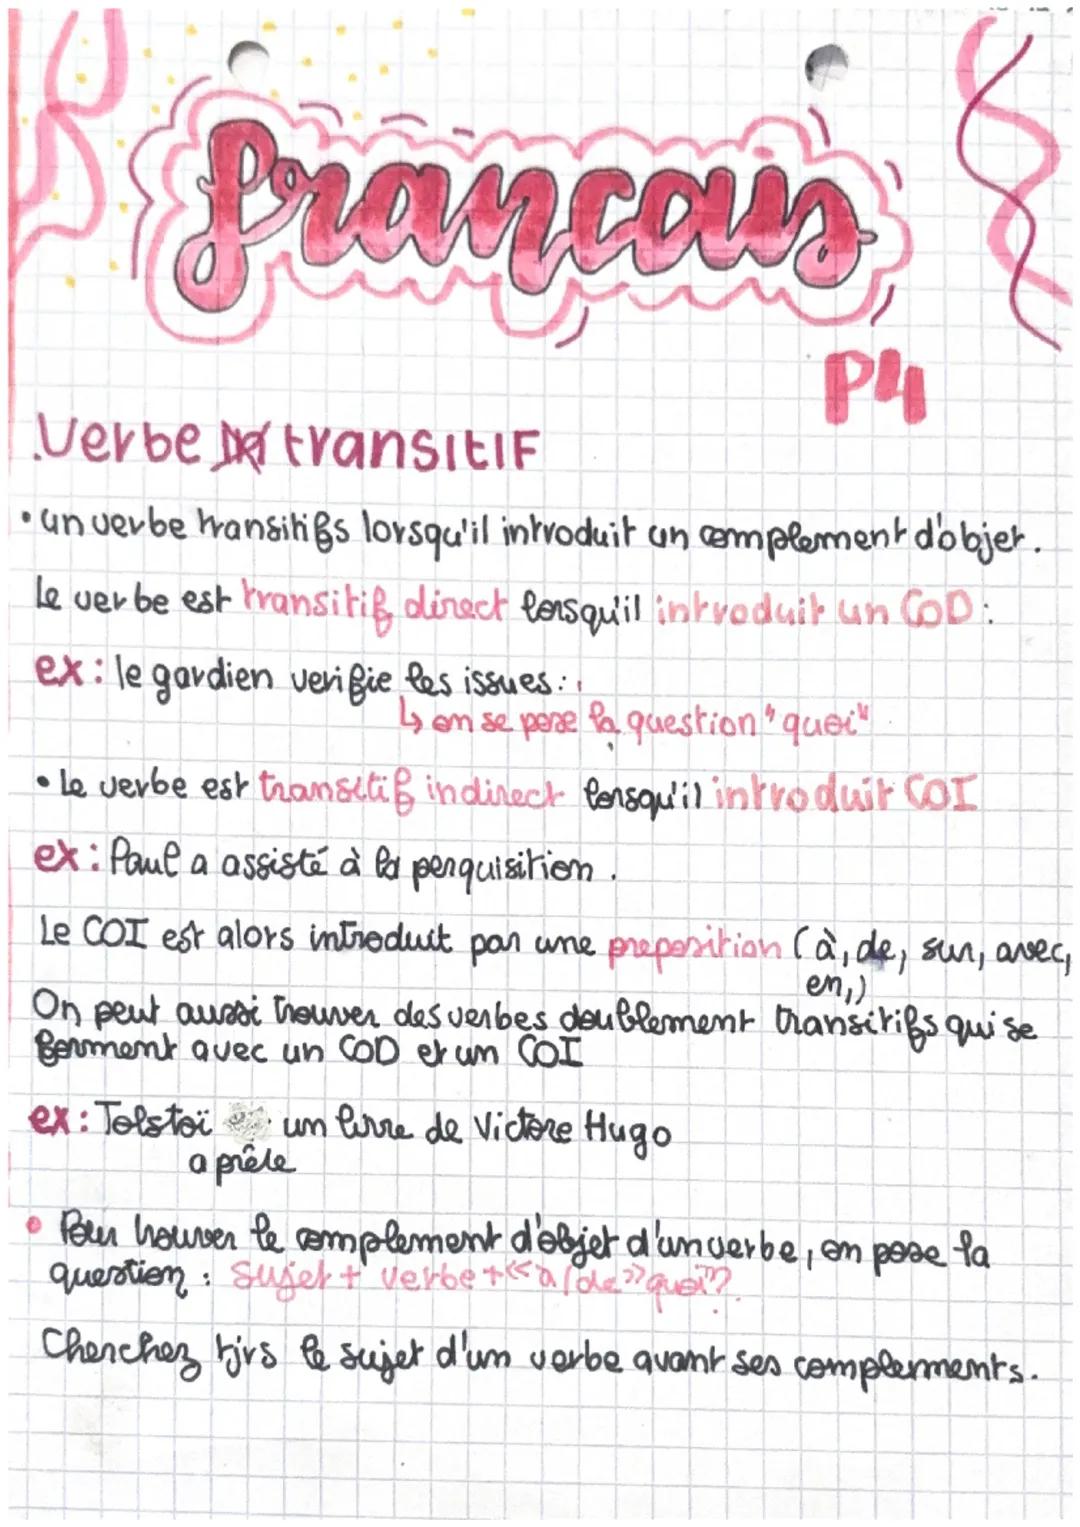 francais
P4
Verbe transitif
• un verbe transitifs lorsqu'il introduit un complement d'objet.
Le verbe est transitif direct lorsqu'il introduit un COD :
ex : le gardien verifie les issues :
↳ on se pose la question "quoi"
• Le verbe est transitif indirect lorsqu'il introduit COI
ex : Paul a assisté à la perquisition.
Le COI est alors introduit par une preposition (à, de, sur, avec,
en,)
On peut aussi trouver des verbes doublement transitifs qui se
forment avec un COD et un COI
ex : Tolstoï un livre de Victore Hugo
a prêle
• Pour trouver le complement d'objet d'un verbe, on pose la
question : Sujet + verbe + «à/de» quoi"?
Cherchez tjrs le sujet d'un verbe avant ses complements.